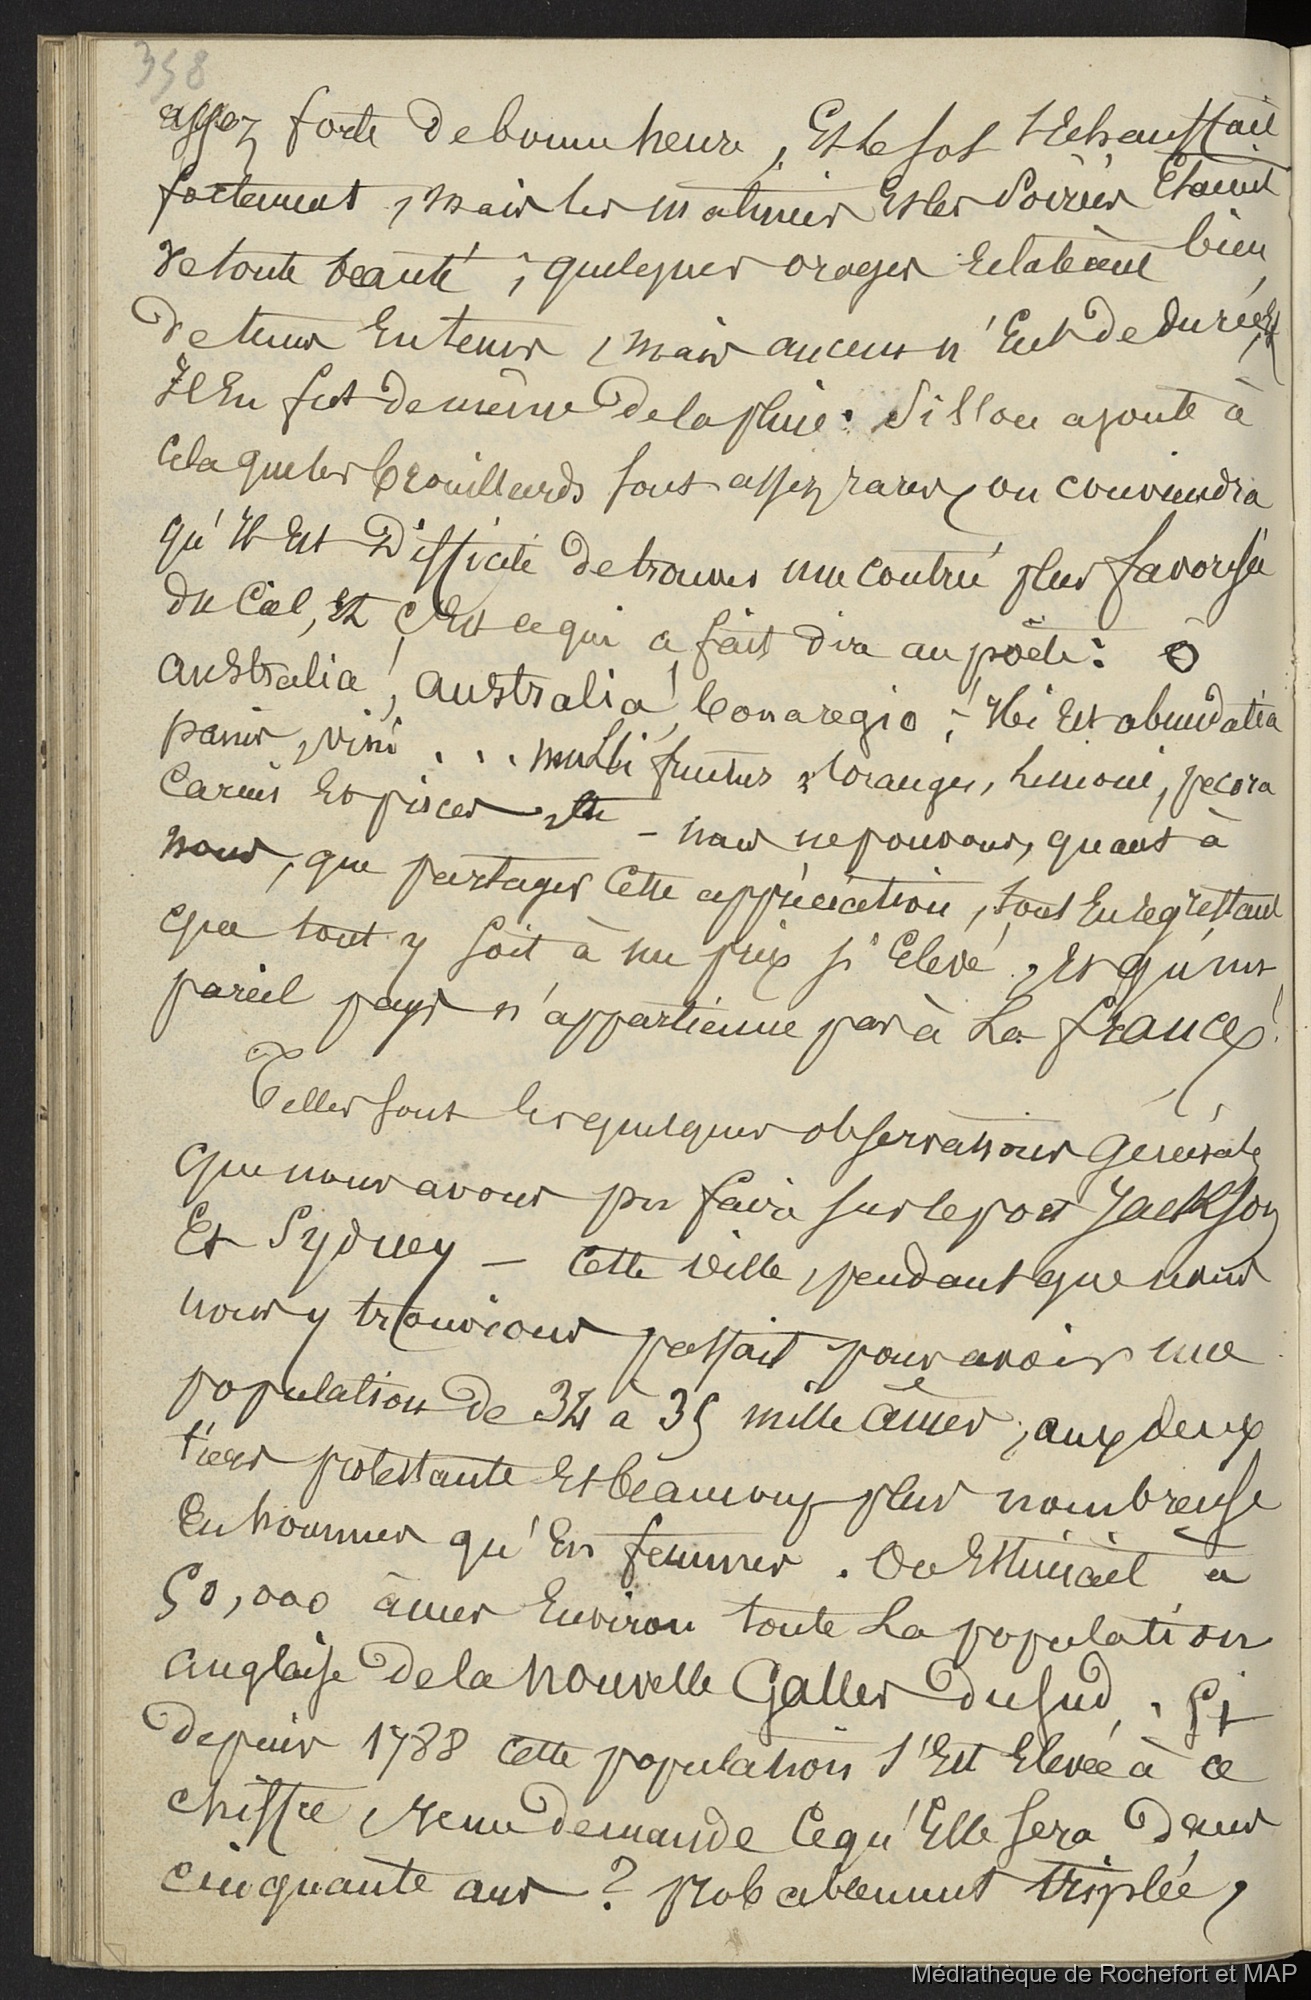 358
assez forte de bonne heure, Et le sol s'Echauffait
fortement, mais les matinées Et les Soirées Etaient
de toute beauté; quelques orages Eclataient bien
de tems En tems, mais aucun n'Eut de durée, Et
Il En fut de même de la pluie. Si l'on ajoute à
cela que les brouillards sont assez rares, on conviendra
qu'Il Est Difficile de trouver une contrée plus favorisée
du Ciel, Et C'Est ce qui a fait dire au poëte: O
australia! australia! bona regio! Hic Est abundatia
panis, vini ... multi fructus, oranges, limoni, pecora
carnis Et pisces, Etc - nous ne pouvons, quant à
nous, que partager Cette appréciation, tout En regrettant
que tout y soit à un prix si Elevé, Et qu'un
pareil pays n'appartienne pas à La france!
Telles sont les quelques observations Générales
que nous avons pu faire sur le port Jackson
Et Sydney - Cette ville, pendant que nous
nous y trouvions passait pour avoir une
population de 34 à 35 mille âmes, aux deux
tiers protestante Et beaucoup plus nombreuse
En hommes qu'En femmes. On Estimait à
50,000 âmes Environ toute La population
anglaise de la nouvelle Galles du Sud. Si
depuis 1788 cette population s'Est Elevée à ce
chiffre, Je me demande Ce qu'Elle sera Dans
cinquante ans? probablement triplée,
Médiathèque de Rochefort et MAP